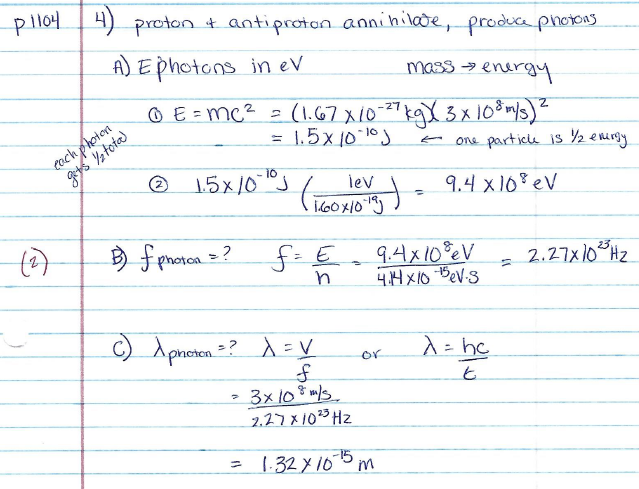 p 1104 4) proton + antiproton annihilate, produce photons
A) E photons in eV mass → energy
① E = mc² = (1.67 x 10⁻²⁷ kg)(3 x 10⁸ m/s)²
= 1.5 x 10⁻¹⁰ J ← one particle is 1/2 energy
each photon
gets 1/2 total
② 1.5 x 10⁻¹⁰ J (1eV / 1.60x10⁻¹⁹J) = 9.4 x 10⁸ eV
(2) B) f photon = ? f = E/h = 9.4 x 10⁸ eV / 4.14 x 10⁻¹⁵ eV·s = 2.27 x 10²³ Hz
C) λ photon = ? λ = v/f or λ = hc/E
= 3 x 10⁸ m/s / 2.27 x 10²³ Hz
= 1.32 x 10⁻¹⁵ m